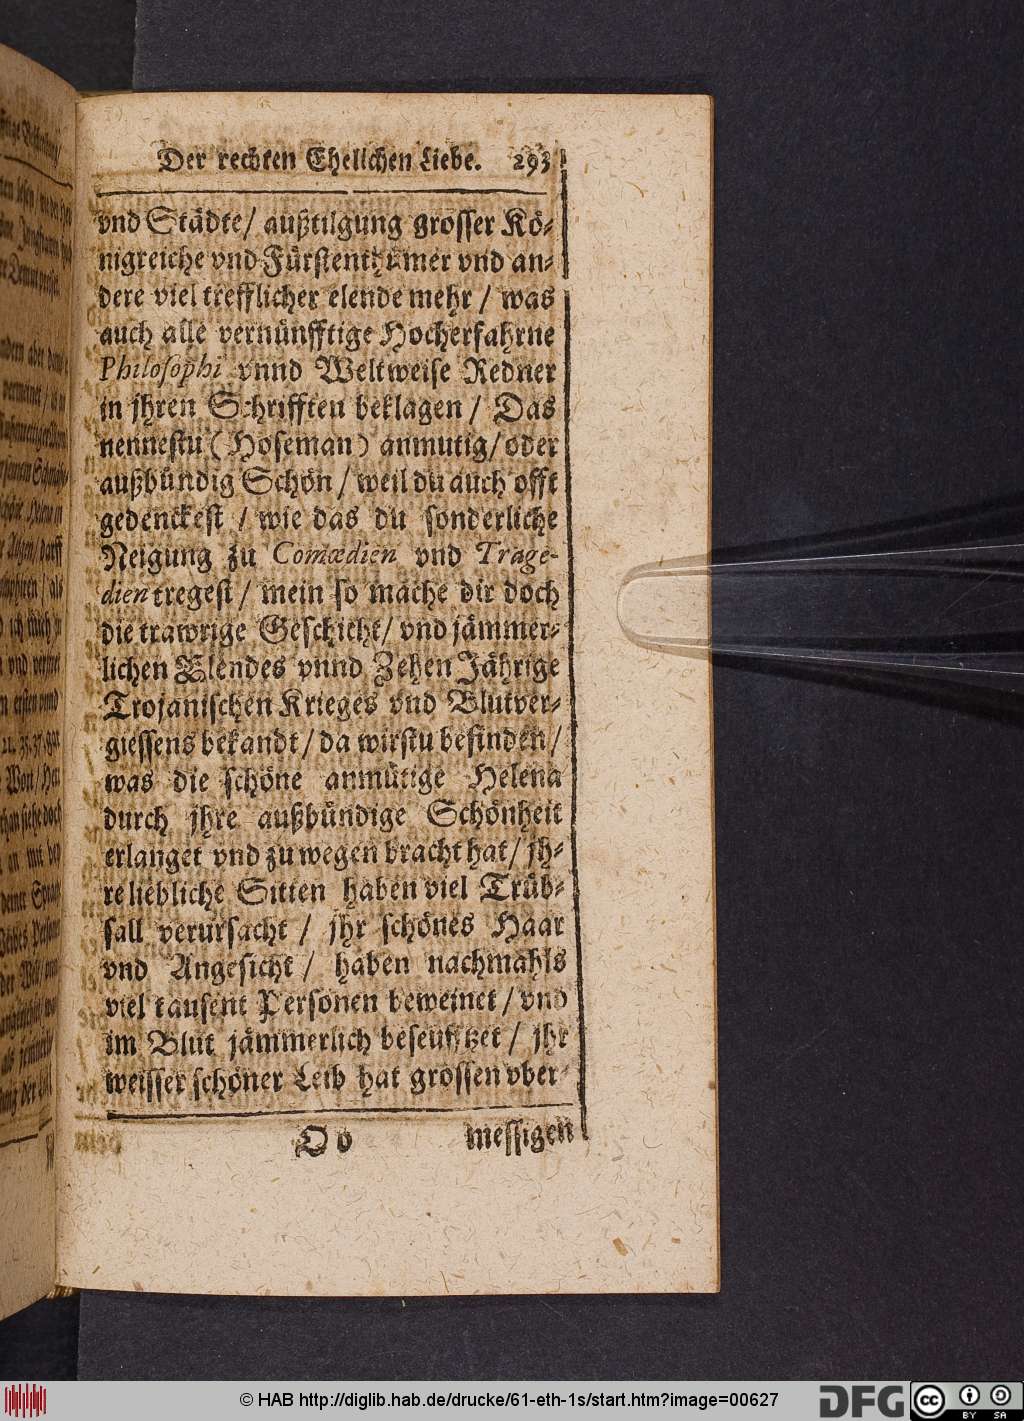 Der rechten Ehelichen Liebe. 293
vnd Städte/ außtilgung grosser Kö-
nigreiche vnd Fürstenthümer vnd an-
dere viel trefflicher elende mehr / was
auch alle vernünfftige Hocherfahrne
Philosophi vnnd Weltweise Redner
in jhren Schrifften beklagen / Das
nennestu (Hoseman) anmutig/ oder
außbündig Schön / weil du auch offt
gedenckest / wie das du sonderliche
Neigung zu Comœdien vnd Trage-
dien tregest / mein so mache dir doch
die trawrige Geschicht/ vnd jämmer-
lichen Elendes vnnd Zehen Jährige
Trojanischen Krieges vnd Blutver-
giessens bekandt / da wirstu befinden /
was die schöne anmütige Helena
durch jhre außbündige Schönheit
erlanget vnd zu wegen bracht hat/ jh-
re liebliche Sitten haben viel Trüb-
sall verursacht / jhr schönes Haar
vnd Angesicht / haben nachmahls
viel tausent Personen beweinet / vnd
im Blut jämmerlich beseufftzet / jhr
weisser schöner Leib hat grossen vber-
Oo messigen
© HAB http://diglib.hab.de/drucke/61-eth-1s/start.htm?image=00627
DFG
cc
BY SA